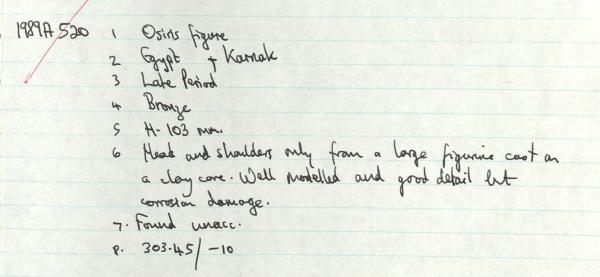 1989A 520 1 Osiris figure
2 Egypt + Karnak
3 Late Period
4 Bronze
5 H- 103 mm.
6 Head and shoulders only from a large figurine cast on
a clay core. Well modelled and good detail but
corrosion damage.
7. Found unacc.
8. 303.45/-10